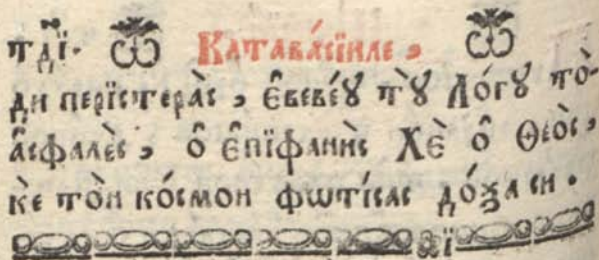 тді· Катава́сїиле,
ди перїстера̀с, ѐ҆вевеі́ꙋ тꙋ̀ Ло́гꙋ то̀-
а҆сфалѐс, ѻ҆̑ ѐ҆пїфани̑с Хѐ ѻ҆̑ Ѳео̀с,
кѐ то̀н ко́смон фѡті́сас до́ѯа си.